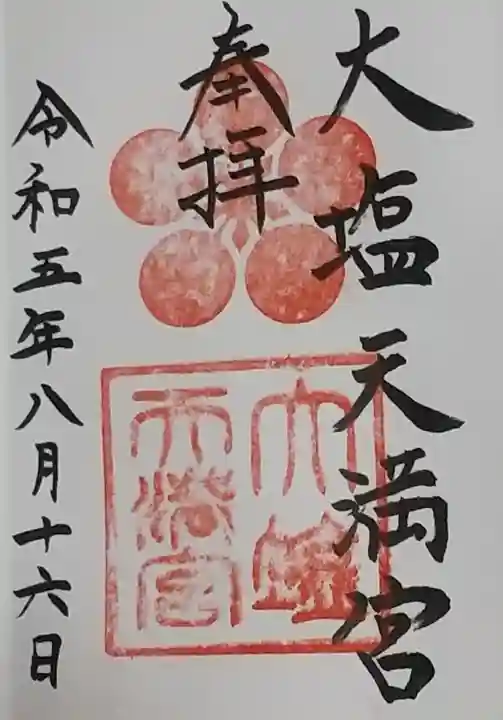 大塩天満宮
奉拝
大塩
天満宮
令和五年八月十六日